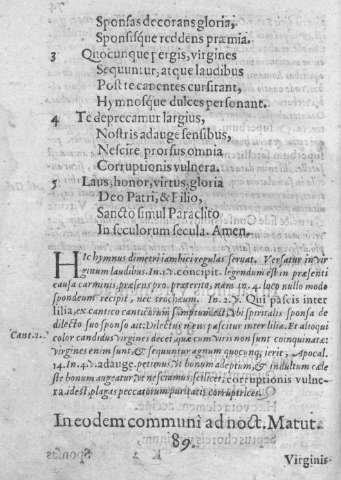 Sponsas decorans gloria,
Sponsisque reddens præmia.
3 Quocunque pergis, virgines
Sequuntur, atque laudibus
Post te canentes cursitant,
Hymnosque dulces personant.
4 Te deprecamur largius,
Nostris adauge sensibus,
Nescire prorsus omnia
Corruptionis vulnera.
5 Laus, honor, virtus, gloria
Deo Patri, & Filio,
Sancto simul Paraclito
In seculorum secula. Amen.
HIc hymnus dimetri iambici regulas seruat. Versatur in vir
ginum laudibus. In. 1. v. concipit. legendum est in præsenti
causa carminis, præsens pro præterito, nam in. 4. loco nullo modo
spondeum recipit, nec trocheum. In. 2. v. Qui pascis inter
lilia, ex cantico canticorum sumptum est, vbi spiritalis sponsa de
dilecto suo sponso ait: Dilectus meus pascitur inter lilia. Et alioqui
color candidus virgines decet, quæ cum viris non sunt coinquinatæ:
Cant. 2.
virgines enim sunt, & sequuntur agnum quocunq; ierit, Apocal.
14. In. 4. v. adauge. petimus vt bonum adeptum, & indultum cæle
ste bonum augeatur vt nesciamus scilicet, corruptionis vulne-
ra. id est, plagas peccatorum puritatis corruptrices.
In eodem communi ad noct. Matut.
89.
Virginis